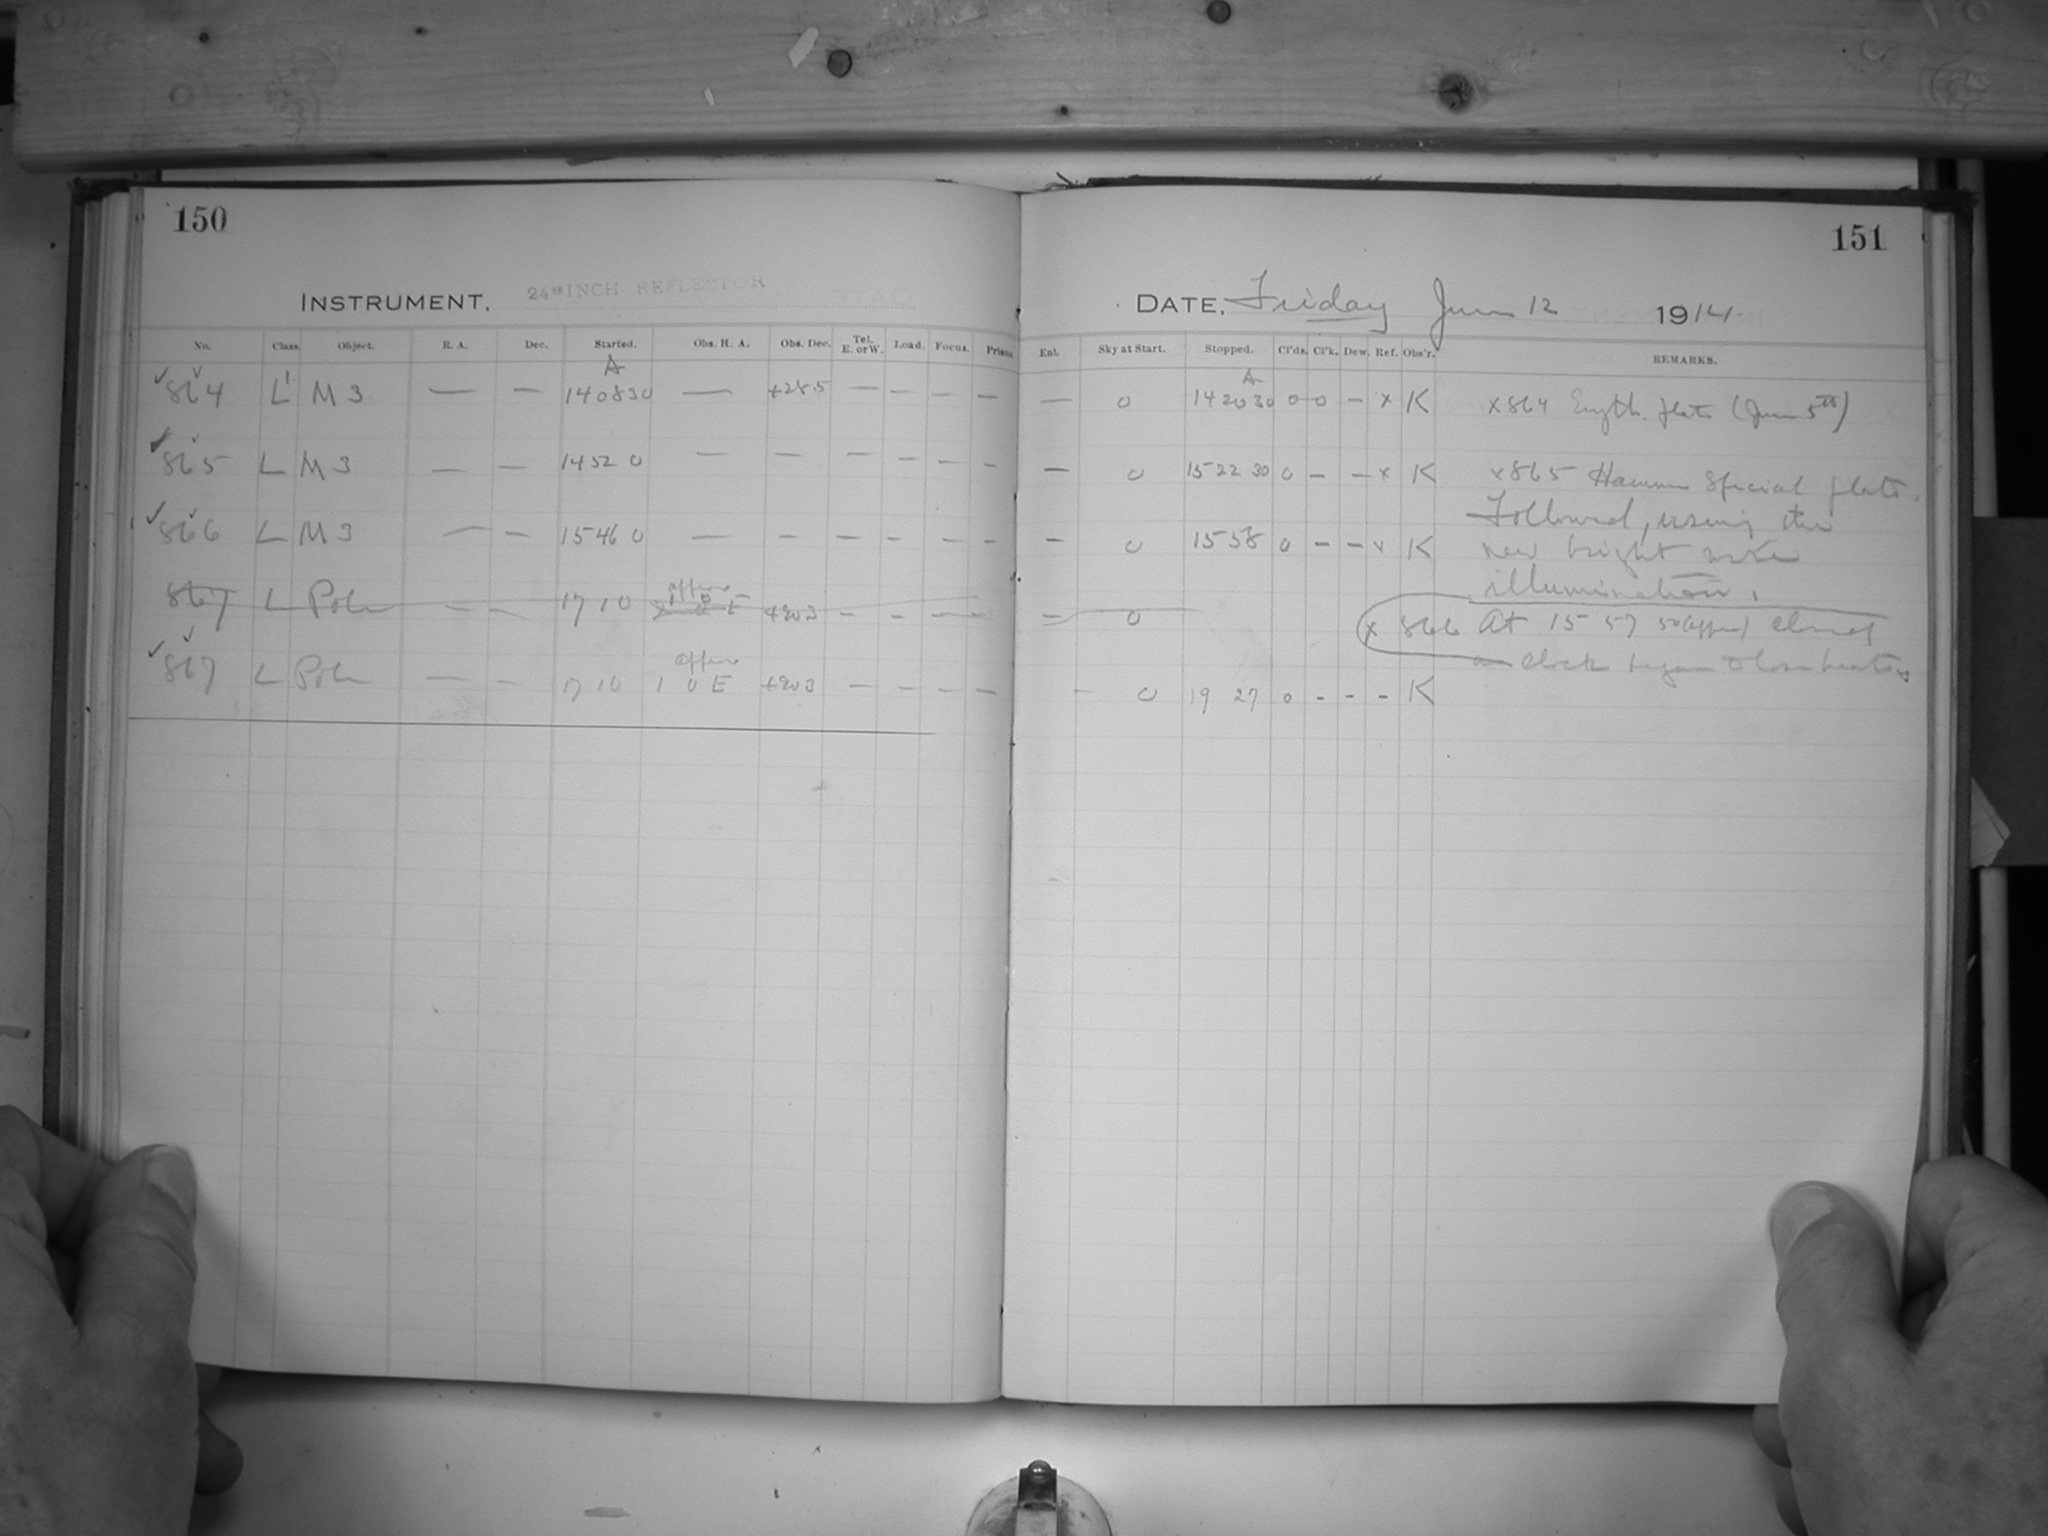 150
151
INSTRUMENT, 24 INCH REFLECTOR
DATE, Friday June 12 1914
No. Class. Object. R. A. Dec. Started. Obs. H. A. Obs. Dec. Tel. E. or W. Load. Focus. Prism. Enl. Sky at Start. Stopped. Cl'ds. Cl'k. Dew. Ref. Obs'r. REMARKS.
A A
864 L M 3 — — 14 08 30 — +28.5 — — — — — 0 14 20 30 0 0 — x K x 864 Eryth. plate (June 5th)
865 L M 3 — — 14 52 0 — — — — — — — 0 15 22 30 0 — — x K x 865 Hammer Special plate.
Followed, using the
866 L M 3 — — 15 46 0 — — — — — — — 0 15 58 0 — — x K new bright wire
illumination.
867 L Pole — — 17 10 E +90 3 — — — — — 0
x 866 At 15 57 50 (approx)
clock began to lose beats
867 L Pole — — 17 10 1 0 E +90 3 — — — — — 0 19 27 0 - - - K